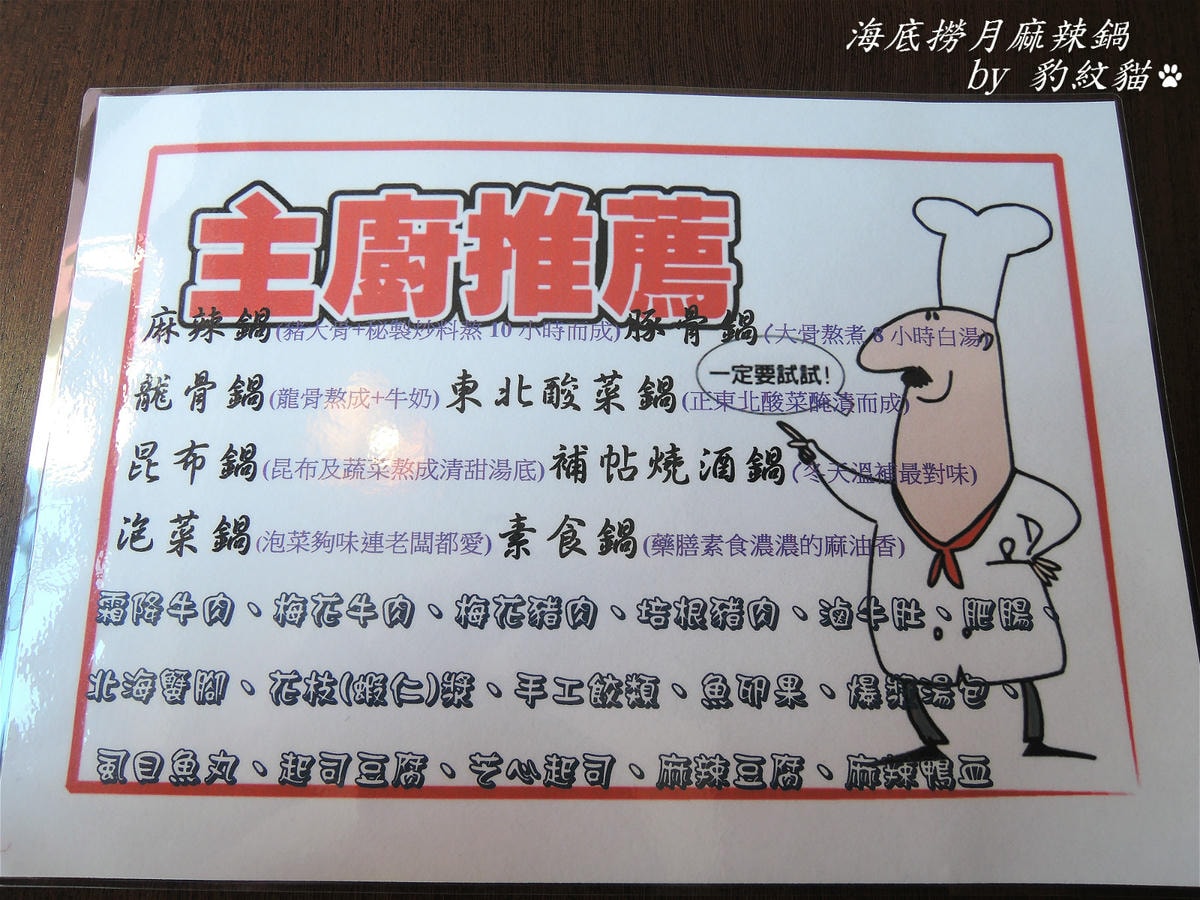 海底撈月麻辣鍋
by 豹紋貓
主廚推薦
麻辣鍋(豬大骨+秘製炒料熬 10 小時而成)豚骨鍋(大骨熬煮 8 小時白湯)
一定要試試!
龍骨鍋(龍骨熬成+牛奶)東北酸菜鍋(正東北酸菜醃漬而成)
昆布鍋(昆布及蔬菜熬成清甜湯底)補帖燒酒鍋(冬天溫補最對味)
泡菜鍋(泡菜夠味連老闆都愛)素食鍋(藥膳素食濃濃的麻油香)
霜降牛肉、梅花牛肉、梅花豬肉、培根豬肉、滷牛肚、肥腸、
北海蟹腳、花枝(蝦仁)漿、手工餃類、魚卵果、爆漿湯包、
虱目魚丸、起司豆腐、芝心起司、麻辣豆腐、麻辣鴨血